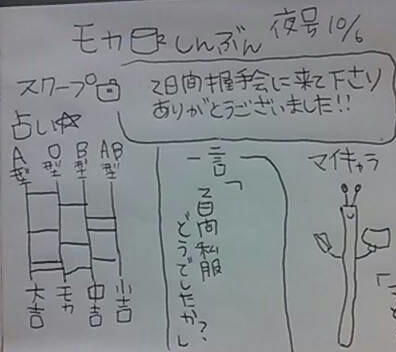 モカしんぶん 夜号 10/6
スクープ
2日間握手会に来て下さり
ありがとうございました!!
占い☆
A型 O型 B型 AB型
大吉 モカ 中吉 小吉
一言
「2日間私服
どうでしたか?」
マイキャラ
「